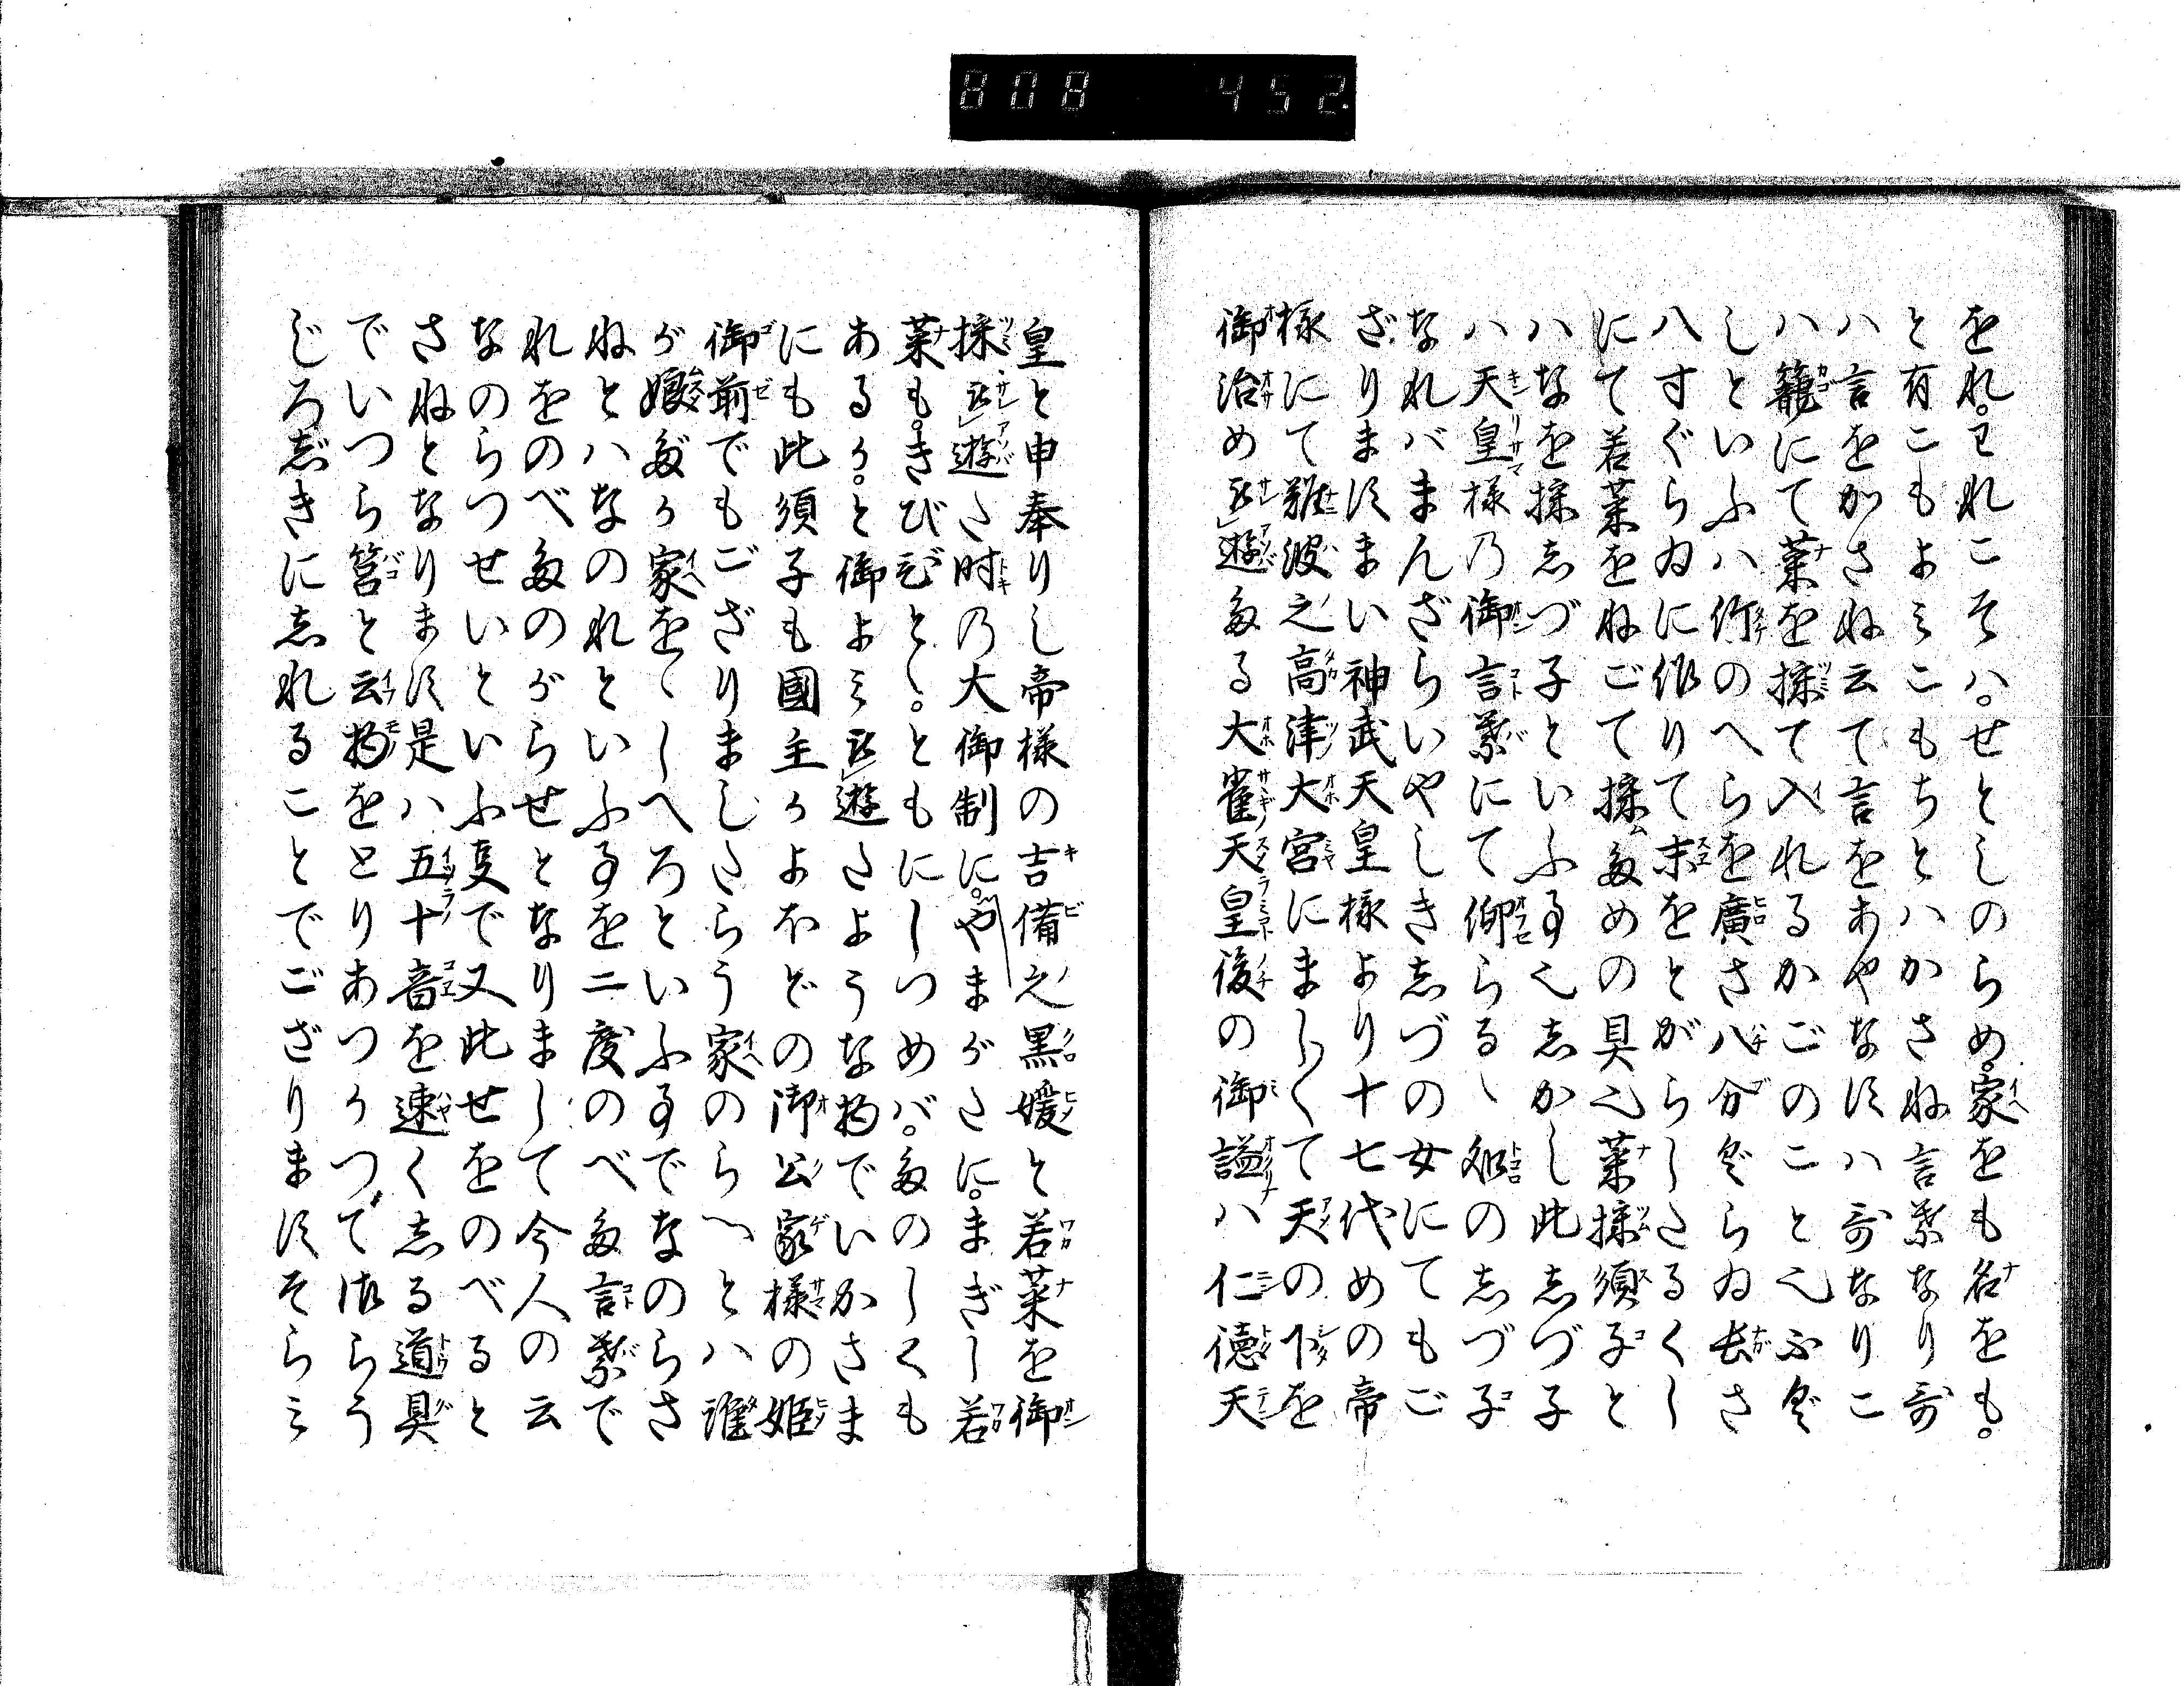 808 452
をれ。われこそハ。せとしのらめ。家をも名をも。
と有こもよミこもちとハかさね言葉なり哥
ハ言をかさね云て言をあやなすハ哥なりこ
ハ籠にて菜を採て入れるかごのことへふぐ
しといふハ竹のへらを廣さ八分ぐらゐ長さ
八寸ぐらゐに作りて末をとがらしたるくし
にて若菜をねごて採ためのの具へ菜採須子と
ハなを採志づ子といふ事へ志かし此志づ子
ハ天皇様乃御言葉にて仰らるゝ処の志づ子
なれバまんざらいやしき志づの女にてもご
ざりますまい神武天皇様より十七代めの帝
様にて難波之高津大宮にましくて天の下を
御治め遊たる大雀天皇後の御謚ハ仁徳天
皇と申奉りし帝様の吉備之黒媛と若菜を御
採遊た時乃大御制に。やまがたに。まぎし若
菜も。きびびとゝ。ともにしつめバ。たのしくも
あるか。と御よミ遊たような物でいかさま
にも此須子も國主かよほどの御公家様の姫
御前でもござりましたらう家のらへとハ誰
が娘だか家をゝしへろといふ事でなのらさ
ねとハなのれといふ事を二度のべた言葉で
れをのべたのがらせとなりまして今人の云
なのらつせいといふ支で又此せをのべると
さねとなります是ハ五十音を速く志る道具
でいつら筥と云物をとりあつかつて居らう
じろ志きに志れることでござりますそらミ